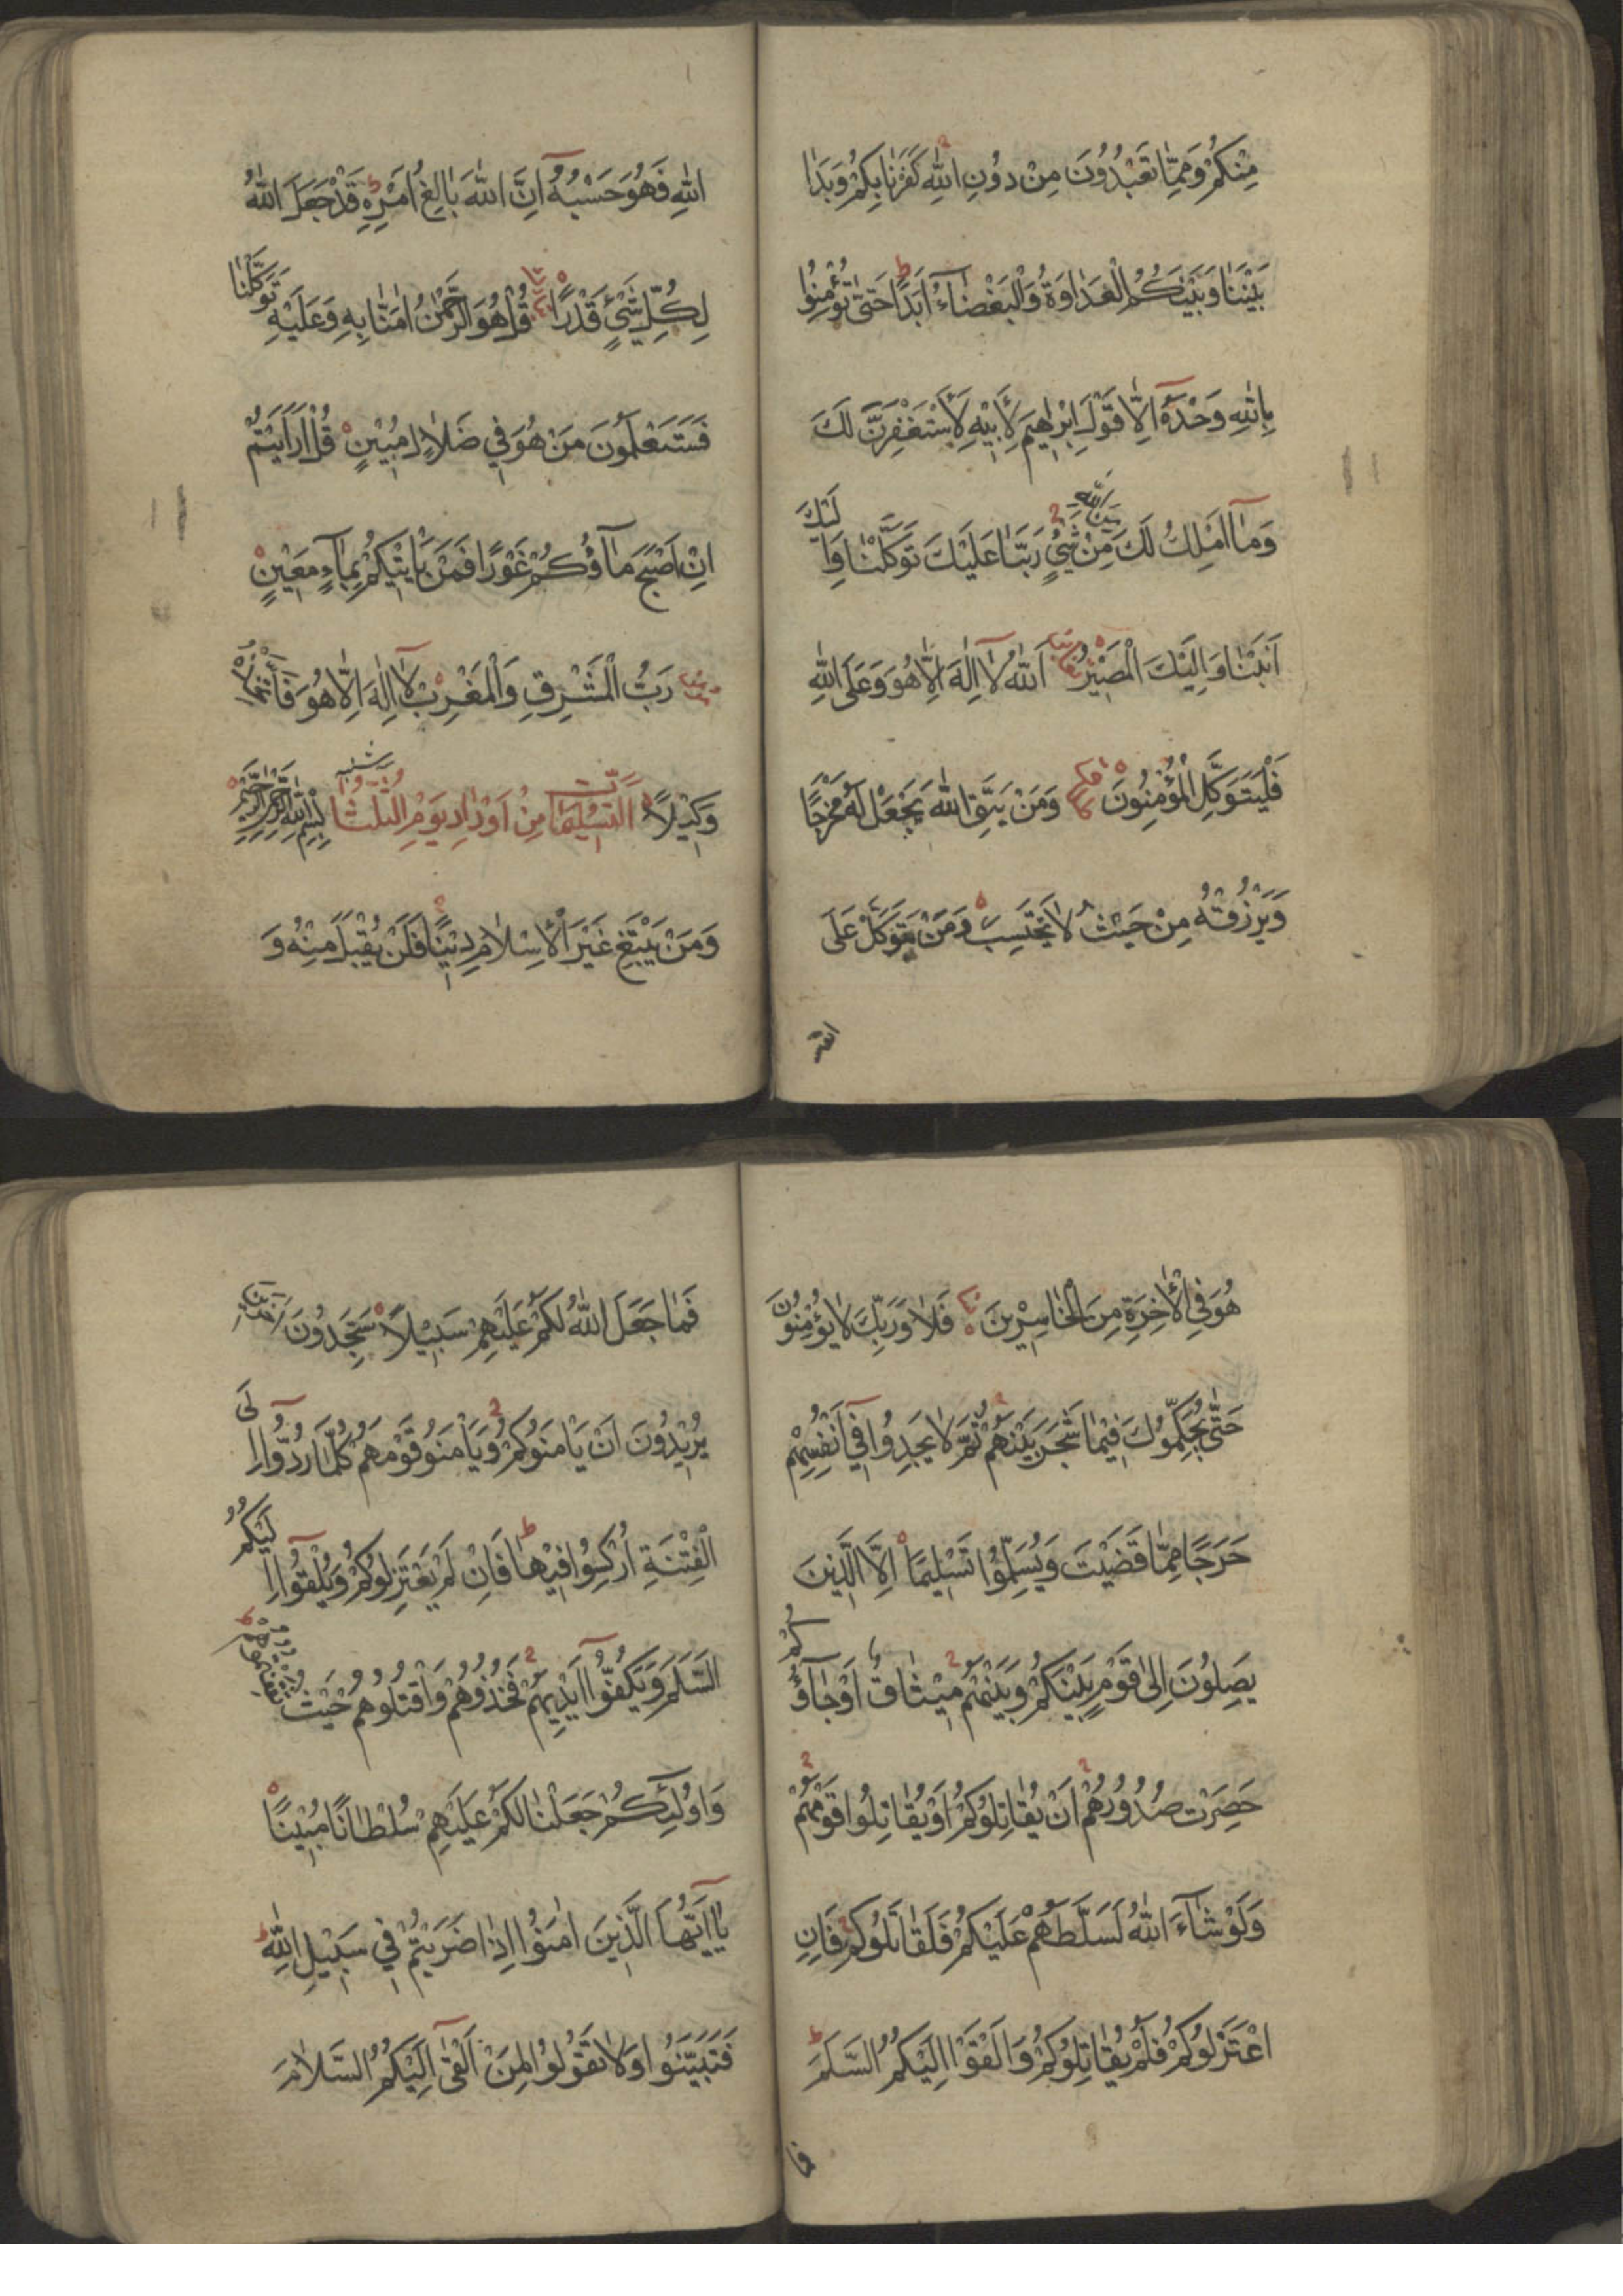 مِنْكُمْ وَمِمَّا تَعْبُدُوُنَ مِنْ دُوُنِ اللّٰهِ كَفَرْنَا بِكُمْ وَبَدَا
بَيْنَنَا وَبَيْنَكُمُ الْعَدَاوَةُ وَالْبَغْضَاءُ اَبَدًا حَتّٰى تُؤْمِنُوا
بِاللّٰهِ وَحْدَهُ اِلَّا قَوْلَ اِبْرٰهِيمَ لِاَبِيْهِ لَاَسْتَغْفِرَنَّ لَكَ
وَمَا اَمْلِكُ لَكَ مِنَ اللّٰهِ مِنْ شَيْءٍ رَبَّنَا عَلَيْكَ تَوَكَّلْنَا وَاِلَيْكَ
اَنَبْنَا وَاِلَيْكَ الْمَصِيْرُ اَللّٰهُ لَا اِلٰهَ اِلَّا هُوَ وَعَلَى اللّٰهِ
فَلْيَتَوَكَّلِ الْمُؤْمِنُونَ وَمَنْ يَتَّقِ اللّٰهَ يَجْعَلْ لَهُ مَخْرَجًا
وَيَرْزُقْهُ مِنْ حَيْثُ لَا يَحْتَسِبْ وَمَنْ يَتَوَكَّلْ عَلَى
اللّٰه
اللّٰهِ فَهُوَ حَسْبُهُ اِنَّ اللّٰهَ بَالِغُ اَمْرِهِ قَدْ جَعَلَ اللّٰهُ
لِكُلِّ شَيْءٍ قَدْرًا قُلْ هُوَ الرَّحْمٰنُ اٰمَنَّا بِهِ وَعَلَيْهِ تَوَكَّلْنَا
فَسَتَعْلَمُونَ مَنْ هُوَ فِي ضَلَالٍ مُبِيْنٍ قُلْ اَرَاَيْتُمْ
اِنْ اَصْبَحَ مَاؤُكُمْ غَوْرًا فَمَنْ يَاْتِيْكُمْ بِمَاءٍ مَعِيْنٍ
رَبُّ الْمَشْرِقِ وَالْمَغْرِبِ لَا اِلٰهَ اِلَّا هُوَ فَاتَّخِذْهُ
وَكِيْلًا اَلتَّسْلِيْمَاتُ مِنْ اَوْرَادِ يَوْمِ الثُّلَثَا بِسْمِ اللّٰهِ الرَّحْمٰنِ الرَّحِيْمِ
وَمَنْ يَبْتَغِ غَيْرَ الْاِسْلَامِ دِيْنًا فَلَنْ يُقْبَلَ مِنْهُ وَ
هُوَ فِي الْاٰخِرَةِ مِنَ الْخَاسِرِيْنَ فَلَا وَرَبِّكَ لَا يُؤْمِنُوُنَ
حَتّٰى يُحَكِّمُوكَ فِيْمَا شَجَرَ بَيْنَهُمْ ثُمَّ لَا يَجِدُوا فِي اَنْفُسِهِمْ
حَرَجًا مِمَّا قَضَيْتَ وَيُسَلِّمُوا تَسْلِيْمًا اِلَّا الَّذِيْنَ
يَصِلُوُنَ اِلٰى قَوْمٍ بَيْنَكُمْ وَبَيْنَهُمْ مِيْثَاقٌ اَوْ جَاؤُكُمْ
حَصِرَتْ صُدُورُهُمْ اَنْ يُقَاتِلُوكُمْ اَوْ يُقَاتِلُوا قَوْمَهُمْ
وَلَوْ شَاءَ اللّٰهُ لَسَلَّطَهُمْ عَلَيْكُمْ فَلَقَاتَلُوكُمْ فَاِنِ
اعْتَزَلُوكُمْ فَلَمْ يُقَاتِلُوكُمْ وَاَلْقَوْا اِلَيْكُمُ السَّلَمَ
فما
فَمَا جَعَلَ اللّٰهُ لَكُمْ عَلَيْهِمْ سَبِيْلًا سَتَجِدُونَ اٰخَرِيْنَ
يُرِيْدُونَ اَنْ يَاْمَنُوكُمْ وَيَاْمَنُوا قَوْمَهُمْ كُلَّمَا رُدُّوا اِلَى
الْفِتْنَةِ اُرْكِسُوا فِيْهَا فَاِنْ لَمْ يَعْتَزِلُوكُمْ وَيُلْقُوا اِلَيْكُمُ
السَّلَمَ وَيَكُفُّوا اَيْدِيَهُمْ فَخُذُوهُمْ وَاقْتُلُوهُمْ حَيْثُ ثَقِفْتُمُوهُمْ
وَاُولٰئِكُمْ جَعَلْنَا لَكُمْ عَلَيْهِمْ سُلْطَانًا مُبِيْنًا
يَا اَيُّهَا الَّذِيْنَ اٰمَنُوا اِذَا ضَرَبْتُمْ فِي سَبِيْلِ اللّٰهِ
فَتَبَيَّنُوا وَلَا تَقُولُوا لِمَنْ اَلْقٰى اِلَيْكُمُ السَّلَامَ